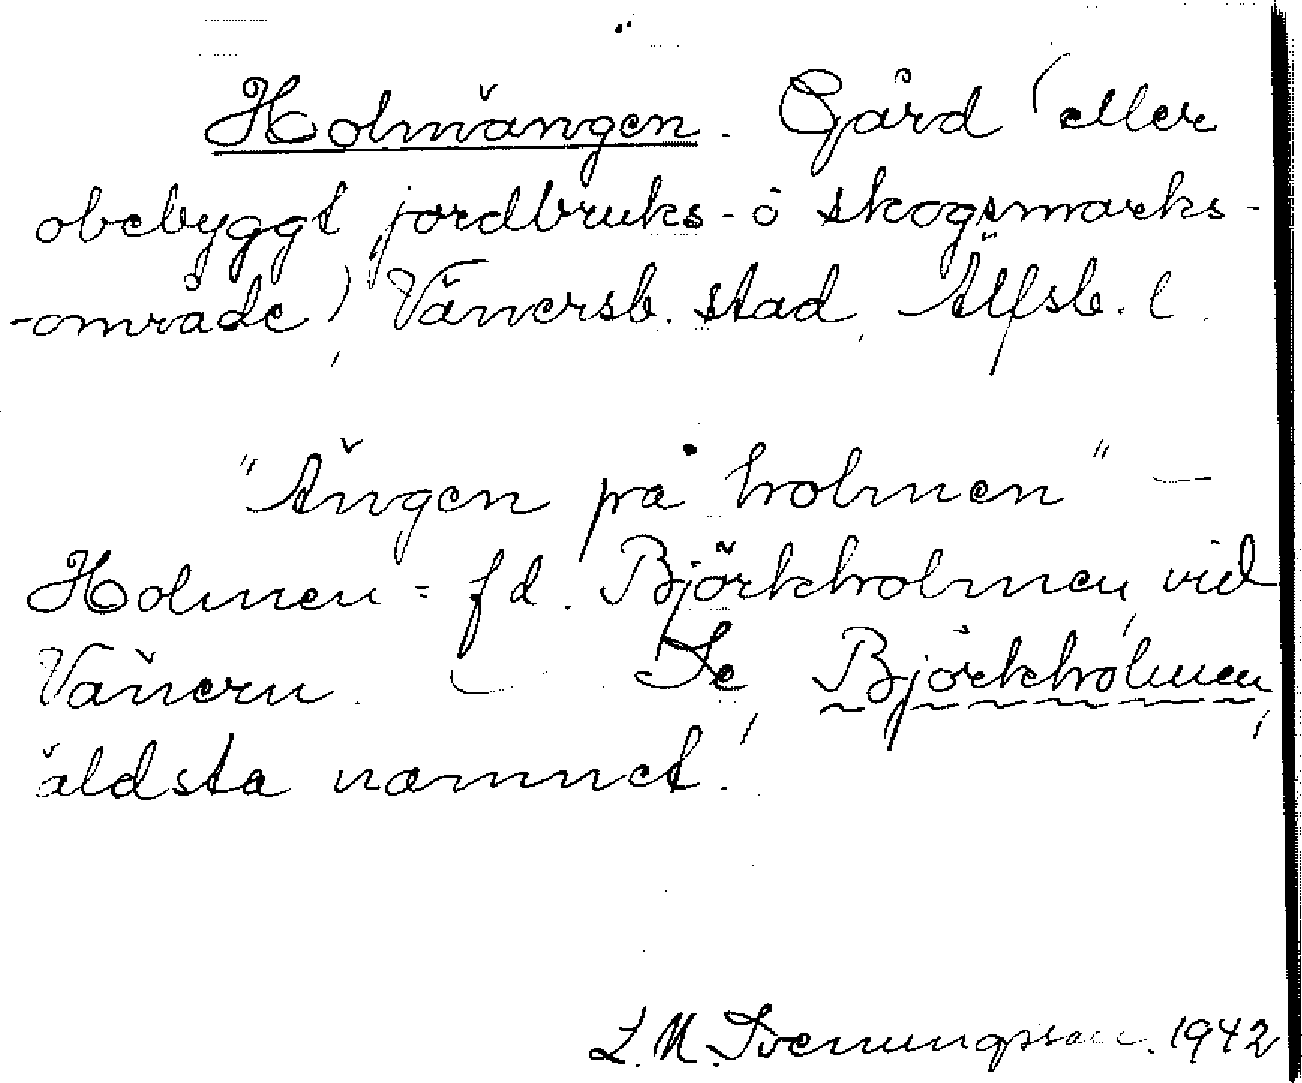 Holmängen. Gård (eller
obebyggt jordbruks- o skogsmarks-
-område), Vänersb. stad, Älfsb. l.
"Ängen på holmen" —
Holmen = f d. Björkholmen, vid
Vänern. — Se Björkholmen,
äldsta namnet!
L. M. Svenungsson. 1942